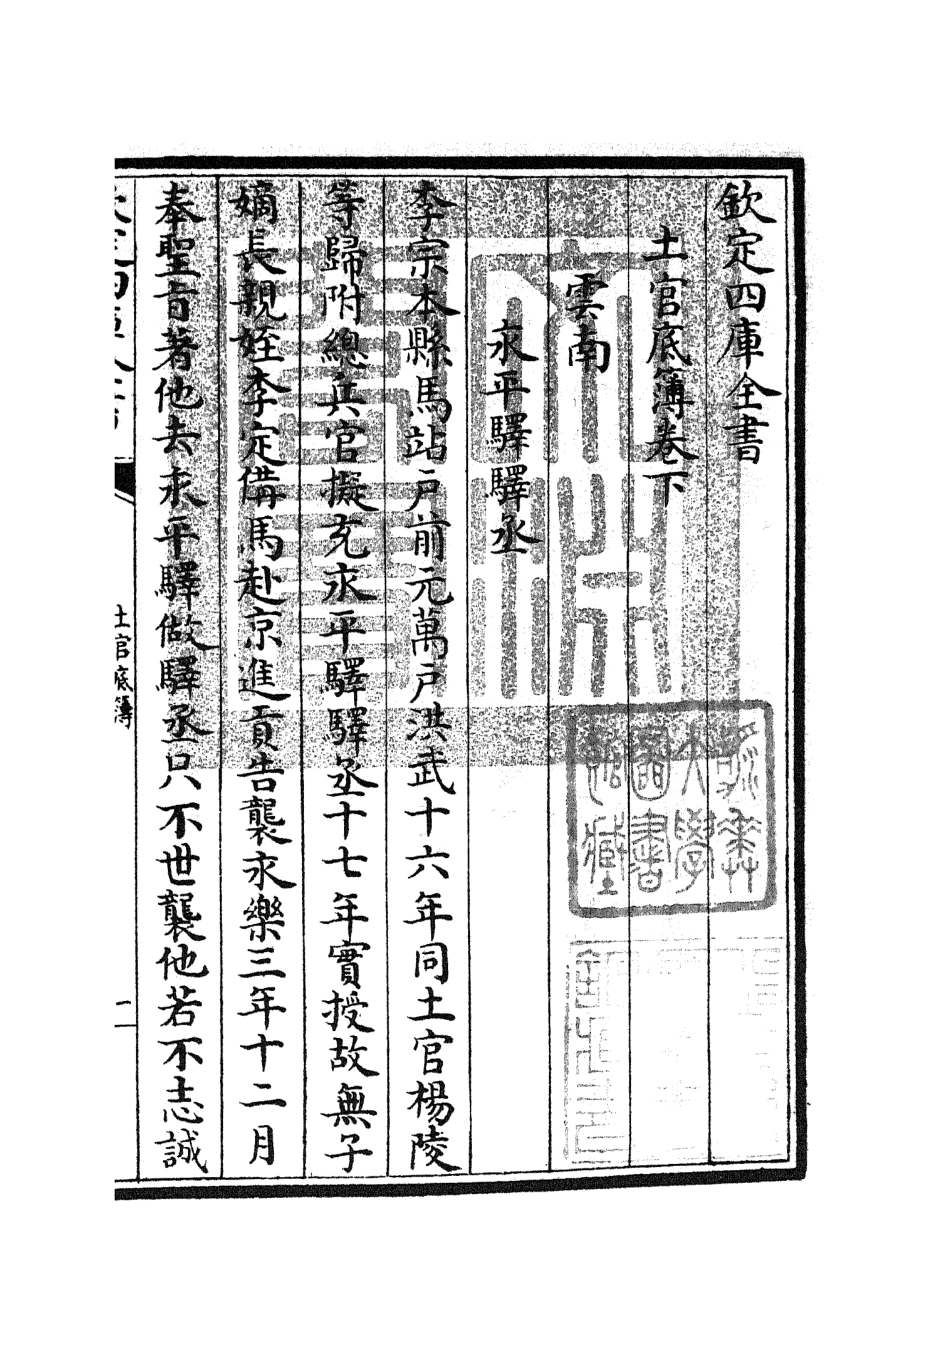 欽定四庫全書
土官底簿卷下
雲南
永平驛驛丞
李宗本縣馬站戸前元萬戸洪武十六年同土官楊陵
等歸附總兵官擬充永平驛驛丞十七年實授故無子
嫡長親姪李定備馬赴京進貢告襲永樂三年十二月
奉聖旨著他去永平驛做驛丞只不世襲他若不志誠
土官底簿
一
大學
圖書